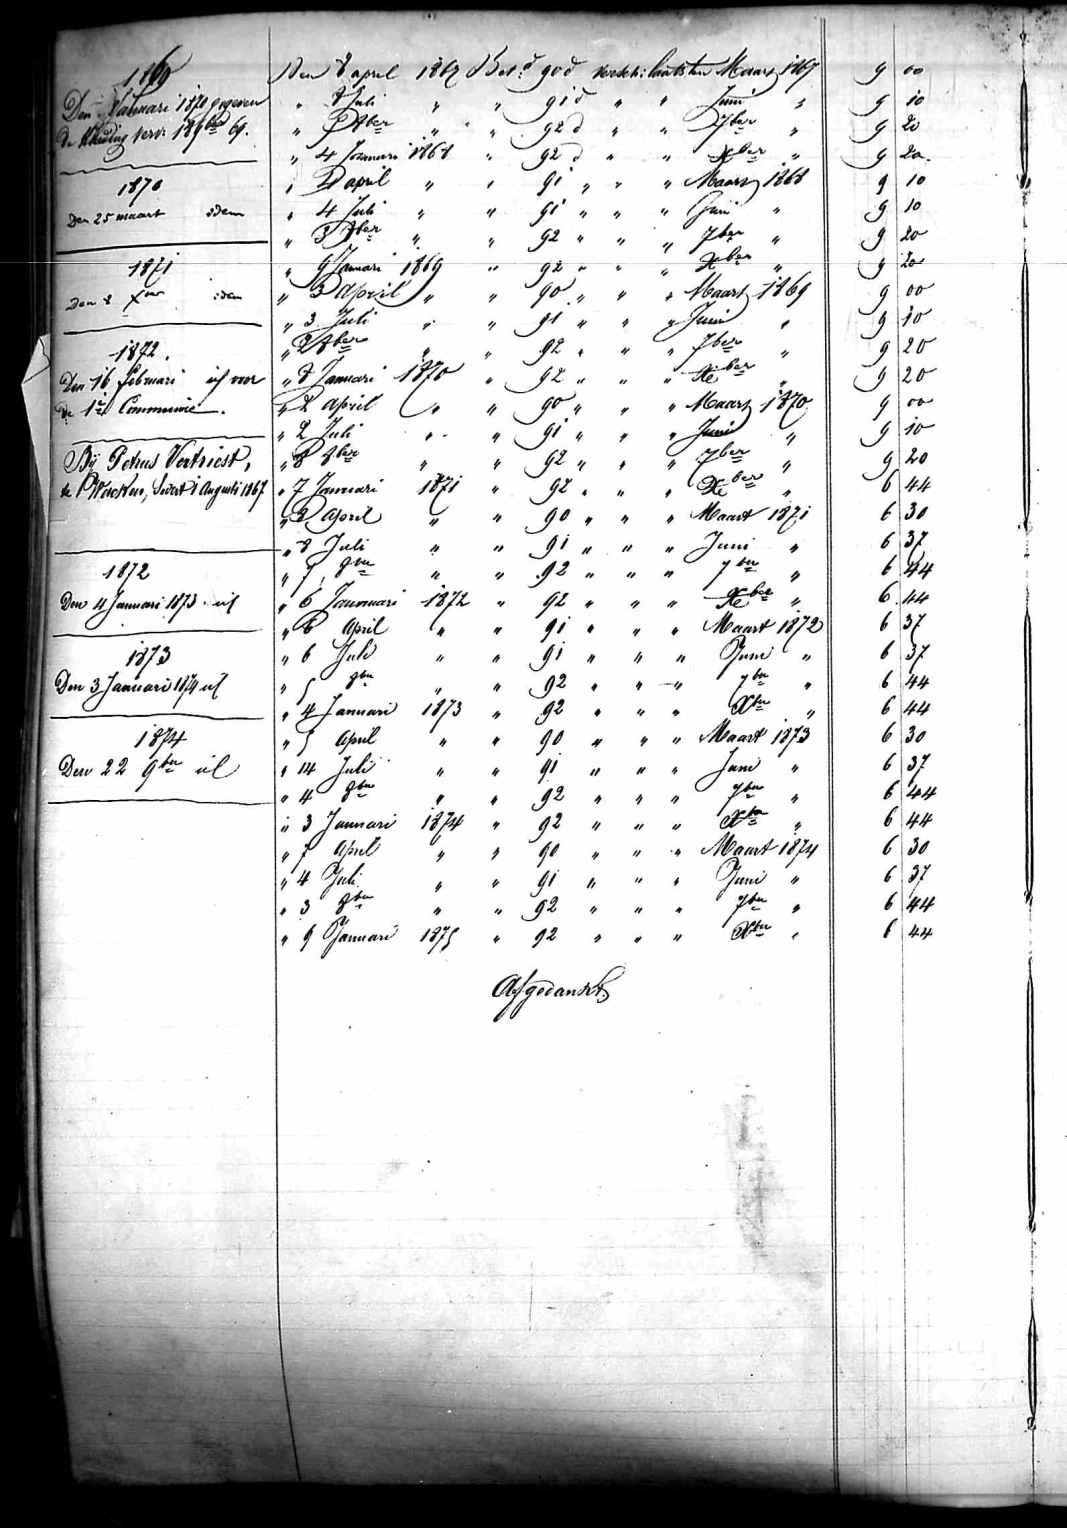 1869
Den Januari 1870 gegeven
de kleeding
1870
Den 25 maart idem
1871
Den 8 Xber idem
1872.
Den 16 februari id voor
de 1e Communie.
Bij Petrus Vertriest,
1 Augusti 1867
1872
Den 4 Januari 1873 id
1873
Den 3 Januari 1874 id
1874
Den 22 9ber id
Den 8 april 1867 Bet.d 90 d versch: laatsten Maart 1867 9 00
" 8 Juli " " 91 d " " Juni " 9 10
" 8ber " " 92 d " " 7ber " 9 20
" 4 Januari 1868 " 92 d " " Xber " 9 20.
" 4 april " " 91 " " " Maart 1868 9 10
" 4 Juli " " 91 " " " Juni " 9 10
" 3 8ber " " 92 " " " 7ber " 9 20
" 9 Januari 1869 " 92 " " " Xber " 9 20
" 3 April " " 90 " " " Maart 1869 9 00
" 3 Juli " " 91 " " " Juni " 9 10
" 2 8ber " " 92 " " " 7ber " 9 20
" 8 Januari 1870 " 92 " " " Xber " 9 20
" 2 April " " 90 " " " Maart 1870 9 00
" 2 Juli " " 91 " " " Juni " 9 10
" 8 8ber " " 92 " " " 7ber " 9 20
" 7 Januari 1871 " 92 " " " Xber " 6 44
" 2 April " " 90 " " " Maart 1871 6 30
" 8 Juli " " 91 " " " Juni " 6 37
" 7 8ber " " 92 " " " 7ber " 6 44
" 6 Januari 1872 " 92 " " " Xber " 6 44
" 6 April " " 91 " " " Maart 1872 6 37
" 6 Juli " " 91 " " " Juni " 6 37
" 5 8ber " " 92 " " " 7ber " 6 44
" 4 Januari 1873 " 92 " " " Xber " 6 44
" 5 April " " 90 " " " Maart 1873 6 30
" 14 Juli " " 91 " " " Juni " 6 37
" 4 8ber " " 92 " " " 7ber " 6 44
" 3 Januari 1874 " 92 " " " Xber " 6 44
" 7 April " " 90 " " " Maart 1874 6 30
" 4 Juli " " 91 " " " Juni " 6 37
" 3 8ber " " 92 " " " 7ber " 6 44
" 9 Januari 1875 " 92 " " " Xber " 6 44
Afgedankt